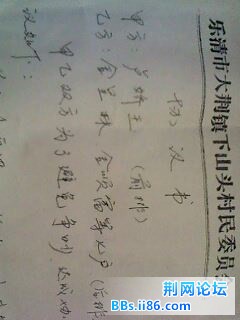 乐清市大荆镇下山头村民委员
协议书
甲方：卢
（前排）
乙方：金
金顺富等七户（后排
甲乙双方为了避免争吵，达成
议如下：
荆网论坛
BBs.ii86.com